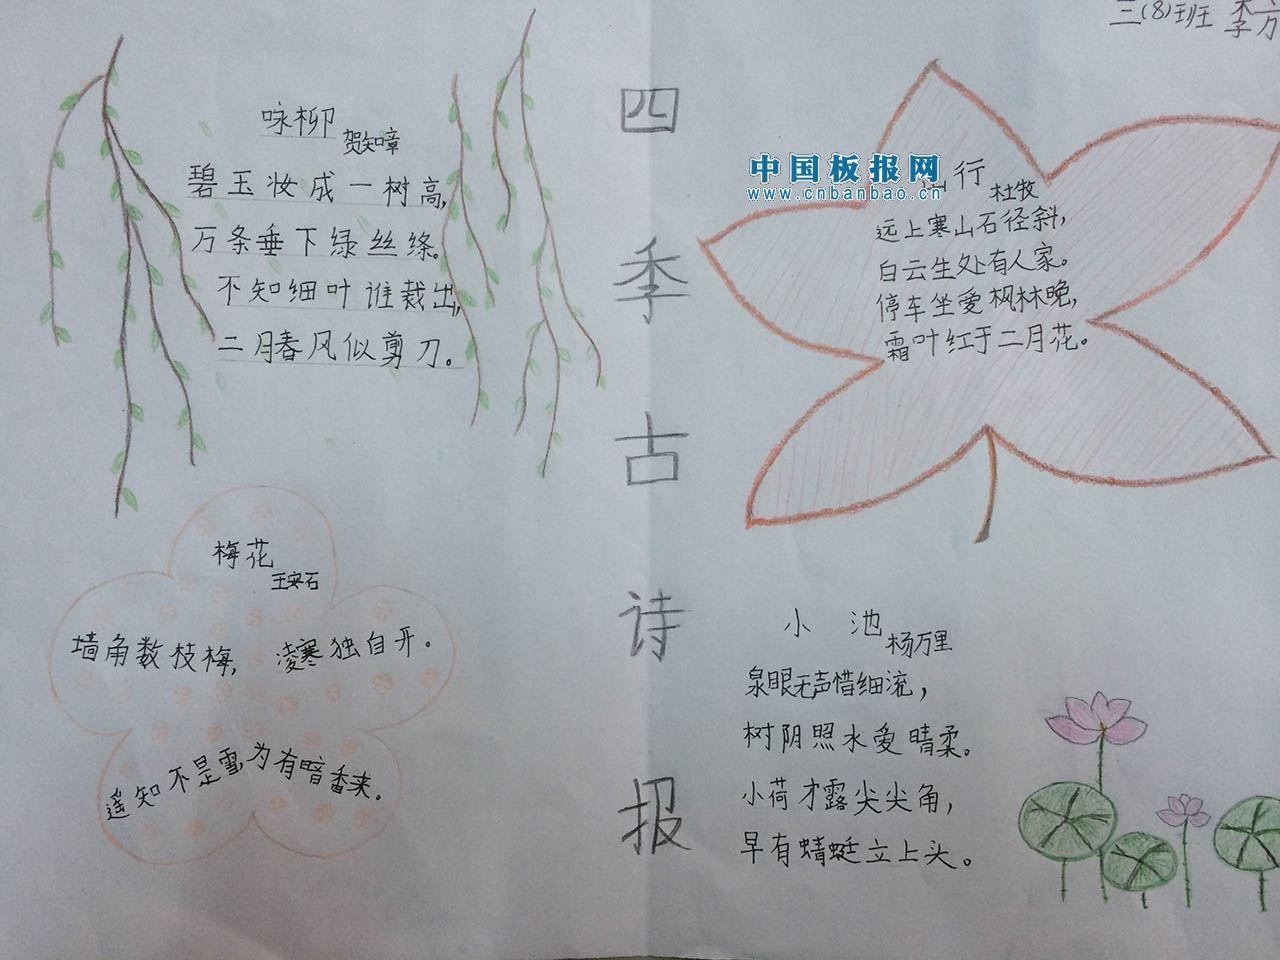 三(8)班 李
咏柳
贺知章
碧玉妆成一树高,
万条垂下绿丝绦。
不知细叶谁裁出,
二月春风似剪刀。
四季古诗报
中国板报网
www.cnbanbao.cn
行
杜牧
远上寒山石径斜,
白云生处有人家。
停车坐爱枫林晚,
霜叶红于二月花。
梅花
王安石
墙角数枝梅, 凌寒独自开。
遥知不是雪,为有暗香来。
小池
杨万里
泉眼无声惜细流,
树阴照水爱晴柔。
小荷才露尖尖角,
早有蜻蜓立上头。